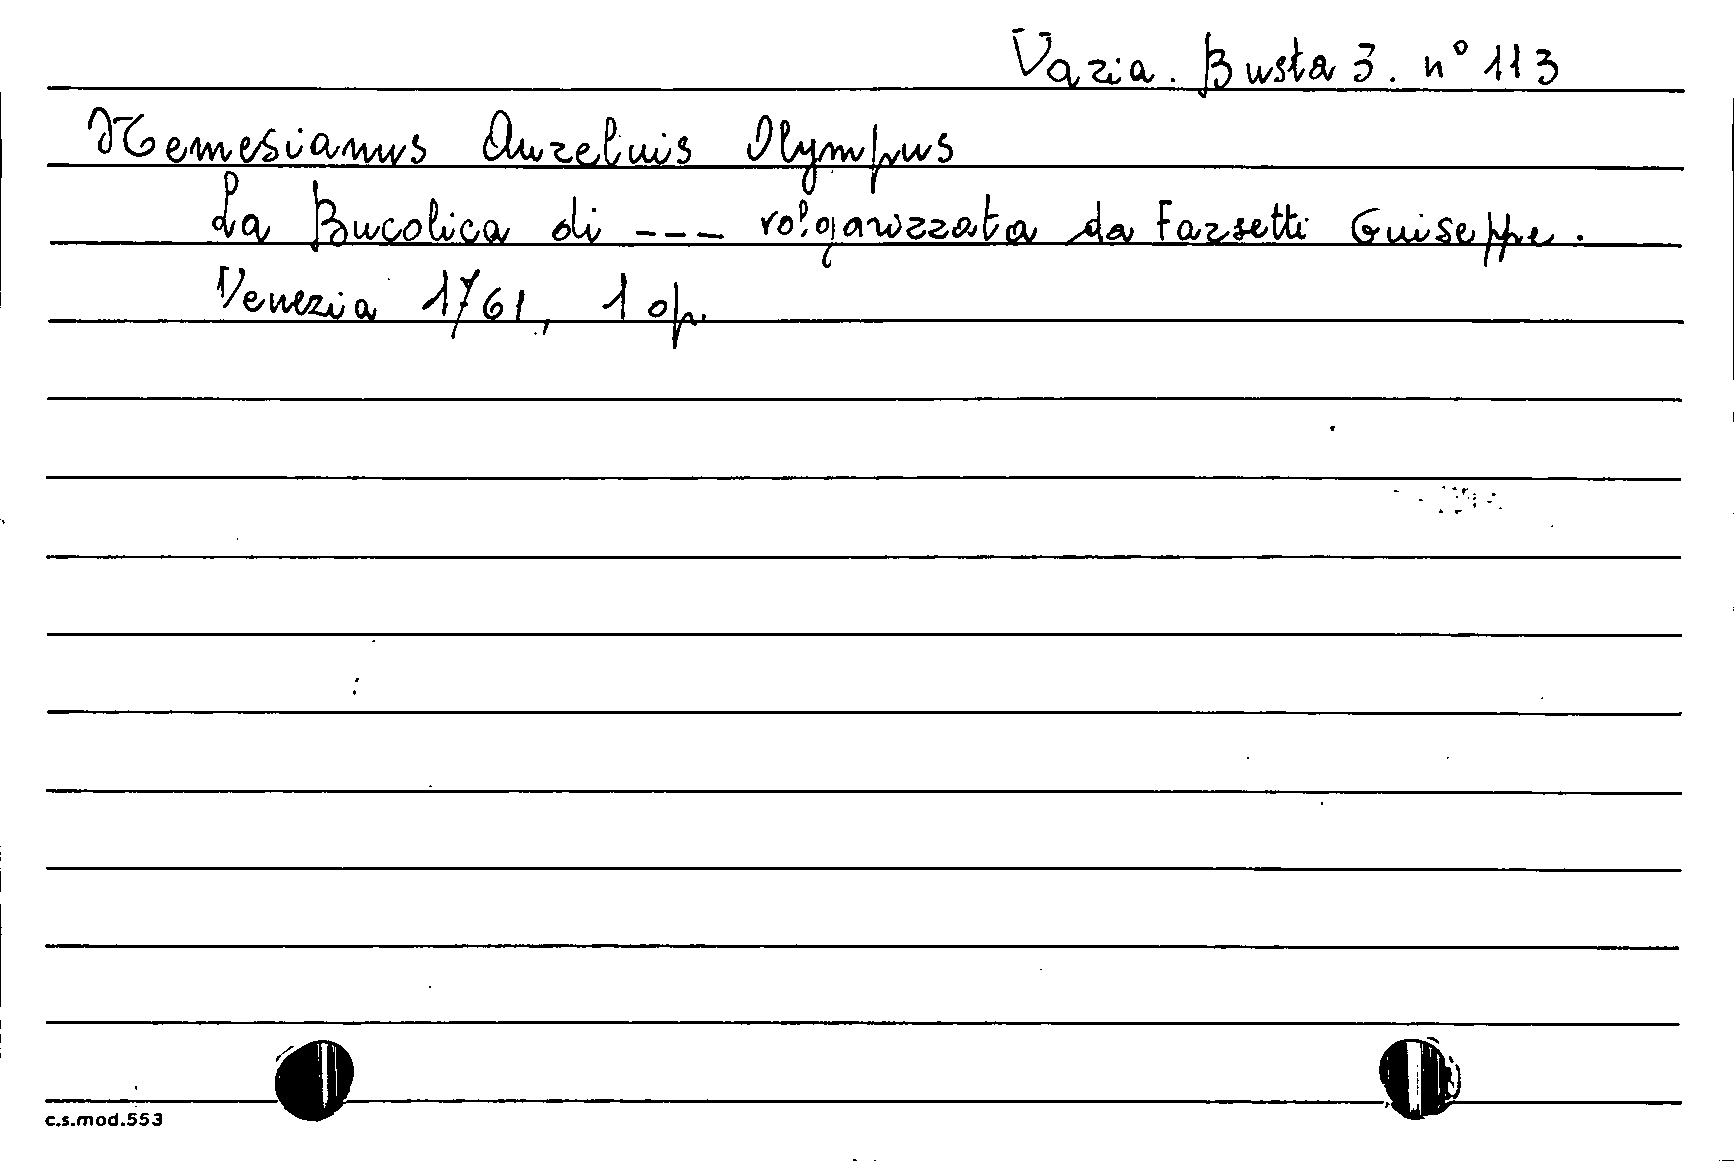 Varia. Busta 3. n° 113
Nemesianus Aurelius Olympus
La Bucolica di --- volgarizzata da Farsetti Giuseppe.
Venezia 1761, 1 op.
c.s.mod.553